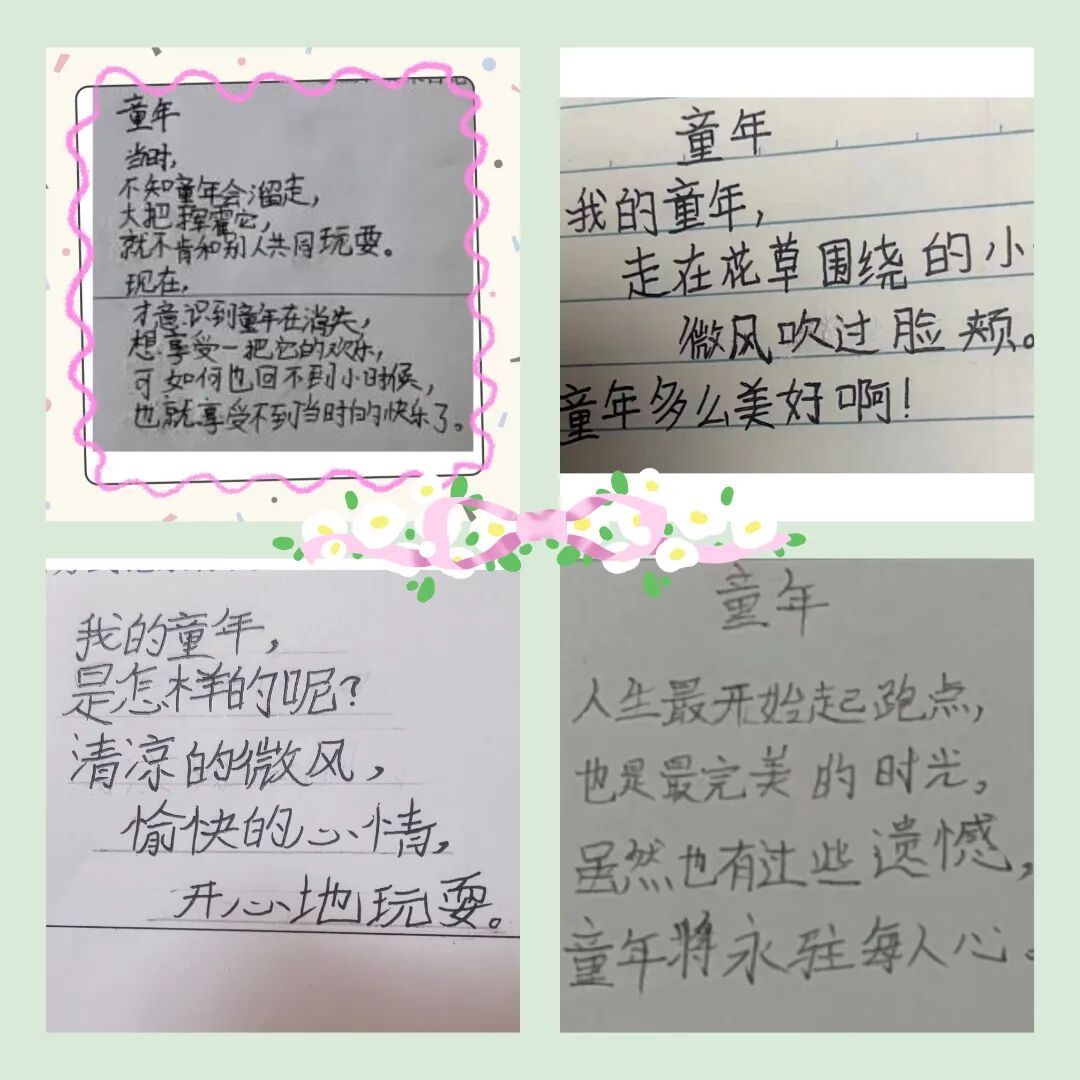 童年
当时,
不知童年会溜走,
大把挥霍它,
就不肯和别人共同玩耍。
现在,
才意识到童年在消失,
想享受一把它的欢乐,
可如何也回不到小时候,
也就享受不到当时的快乐了。
童年
我的童年,
走在花草围绕的小
微风吹过脸颊。
童年多么美好啊!
我的童年,
是怎样的呢?
清凉的微风,
愉快的心情,
开心地玩耍。
童年
人生最开始起跑点,
也是最完美的时光,
虽然也有过些遗憾,
童年将永驻每人心。